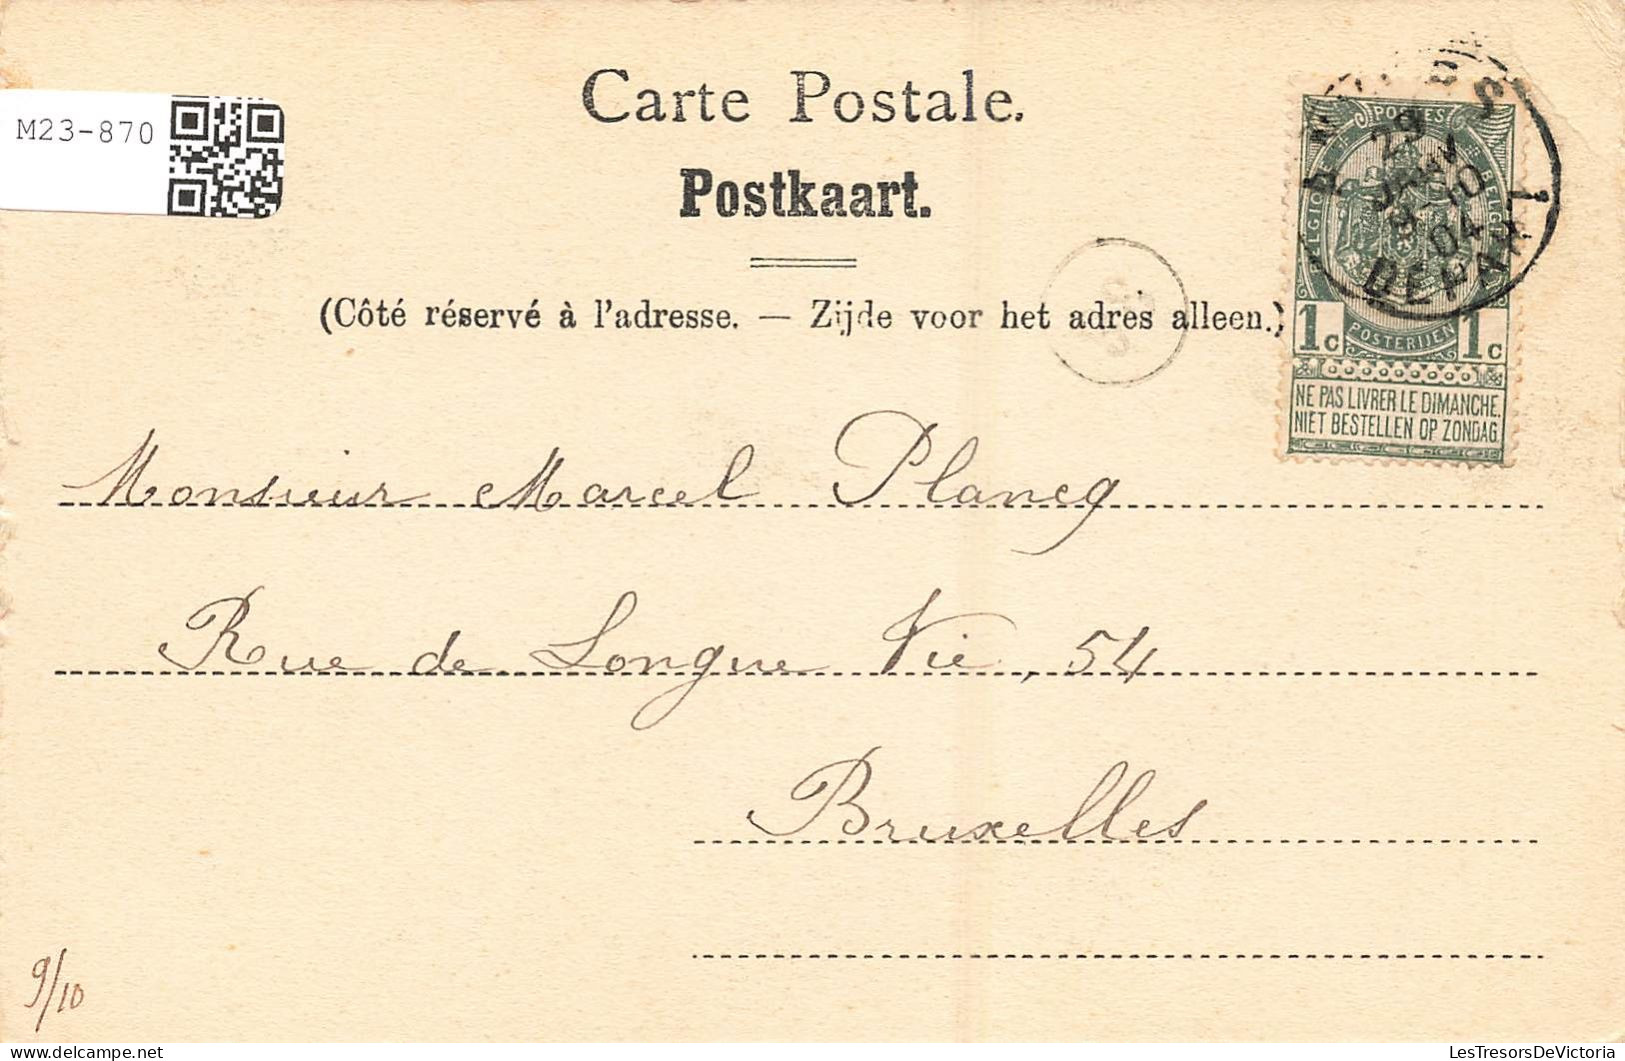 M23-870
Carte Postale.
Postkaart.
(Côté réservé à l'adresse. — Zijde voor het adres alleen.)
POSTES
BELGIQUE BELGIË
29
JANV
9-10
04
DEPART
1c POSTERIJEN 1c
NE PAS LIVRER LE DIMANCHE.
NIET BESTELLEN OP ZONDAG.
Monsieur Marcel Plancq
Rue de Longue Vie, 54
Bruxelles
9/10
LesTresorsDeVictoria